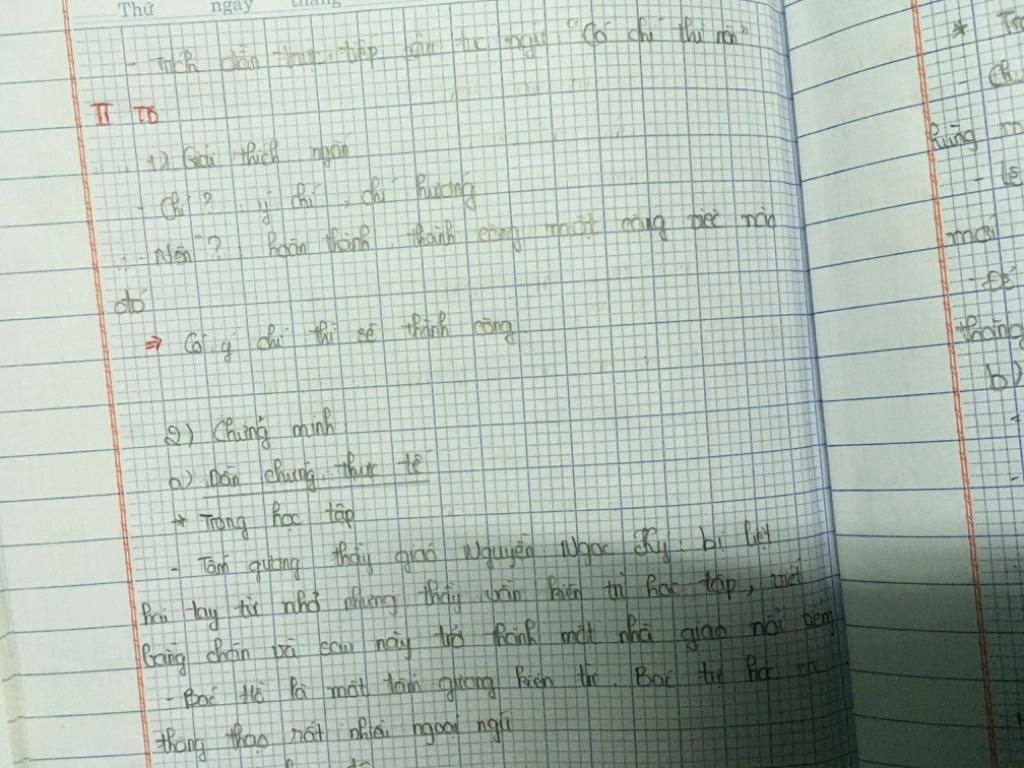 Thứ ngày tháng
- Trích dẫn trực tiếp câu tục ngữ "Có chí thì nên"
II TB
1) Giải thích ngắn
- Chí ? : ý chí, chí hướng
- Nên ? : hoàn thành, thành công một công việc nào
đó
=> Có ý chí thì sẽ thành công
2) Chứng minh
a) Dẫn chứng thực tế
* Trong học tập
- Tấm gương thầy giáo Nguyễn Ngọc Ký: bị liệt
hai tay từ nhỏ nhưng thầy vẫn kiên trì học tập, viết
bằng chân và sau này trở thành một nhà giáo nổi tiếng
- Bác Hồ là một tấm gương kiên trì. Bác tự học và
thông thạo rất nhiều ngoại ngữ
* Tro
- Ch
hùng m
- Lê
mai
- Để
thoòng
b)